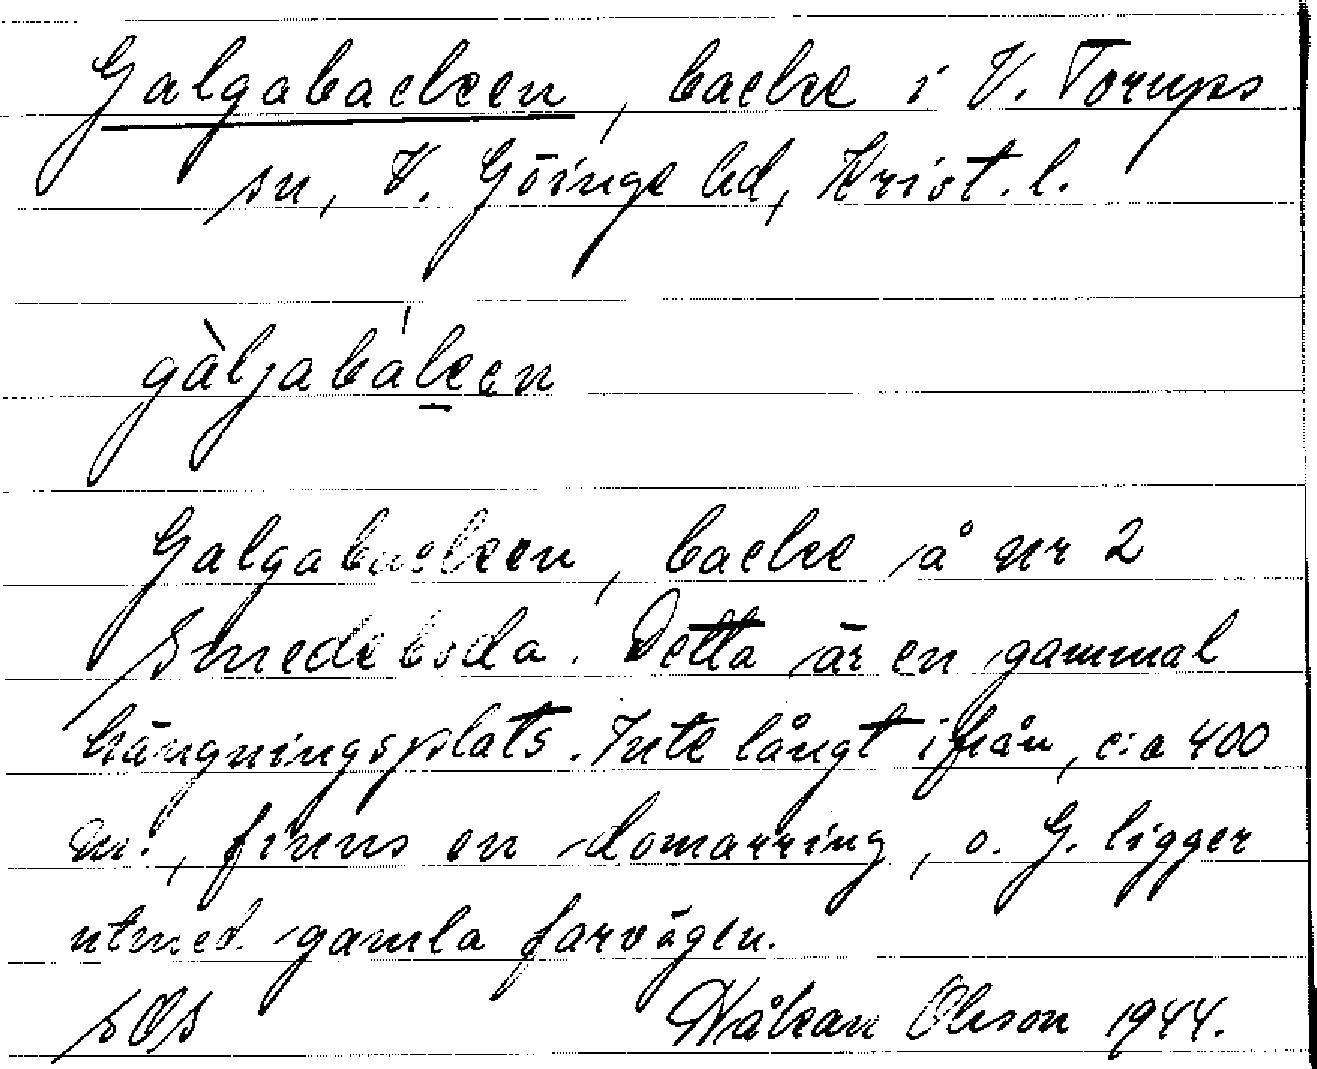 Galgabacken, backe i V. Torups
sn, V. Göinge hd, Krist. l.
gàljabáken
Galgabacken, backe å nr 2
Smedeboda. Detta är en gammal
hängningsplats. Inte långt ifrån, c:a 400
m., finns en domarring, o. G. ligger
utmed gamla farvägen.
sOs Håkan Olsson 1944.